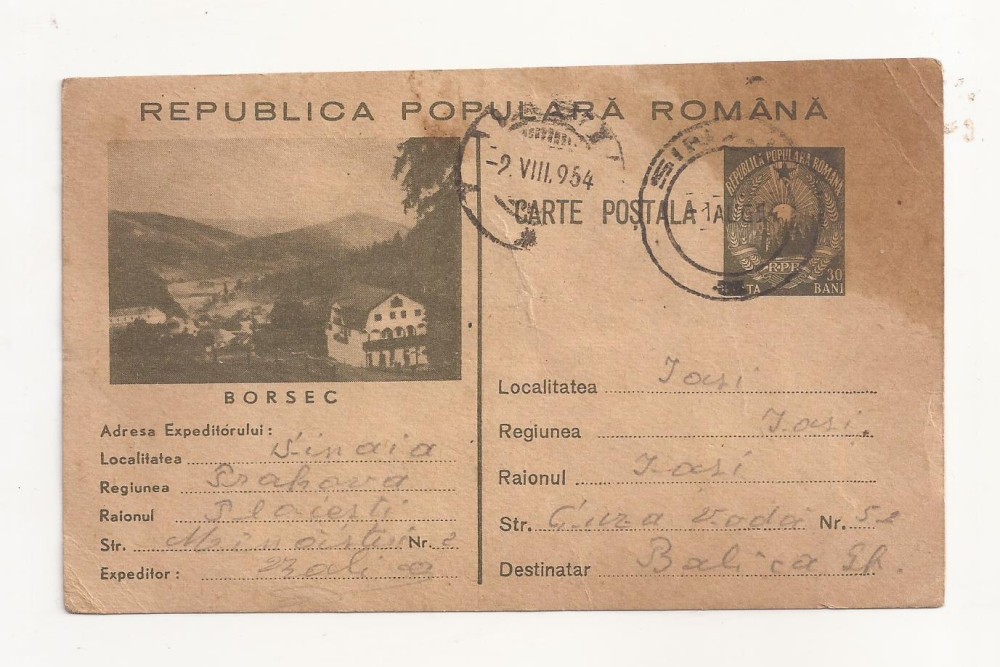 REPUBLICA POPULARĂ ROMÂNĂ
-2.VIII.954
CARTE POȘTALA
REPUBLICA POPULARA ROMANA
R·P·R
30
BANI
BORSEC
Adresa Expeditórului:
Localitatea Sinaia
Regiunea Prahova
Raionul Ploiesti
Str. Nr. 2
Expeditor: Balica
Localitatea Iasi
Regiunea Iasi.
Raionul Iasi
Str. Cuza Vodă Nr. 52
Destinatar Balica Gh.